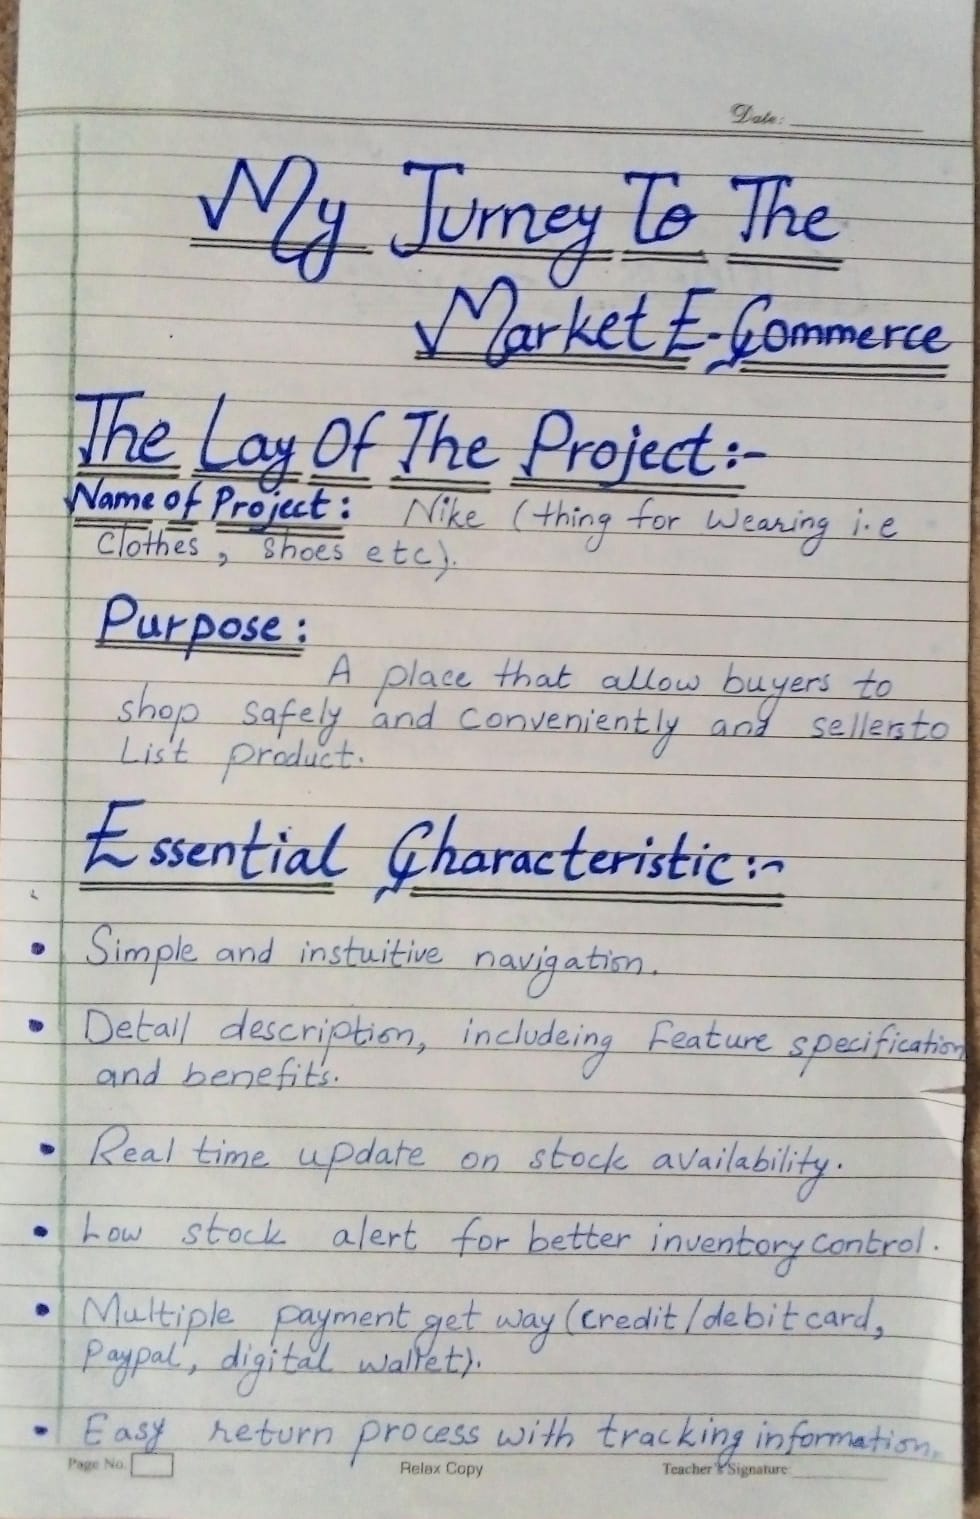 Date:
My Jurney To The
Market E-Commerce
The Lay Of The Project:-
Name of Project: Nike (thing for wearing i.e
clothes, shoes etc).
Purpose:
A place that allow buyers to
shop safely and conveniently and sellers to
List product.
Essential Characteristic:-
• Simple and instuitive navigation.
• Detail description, includeing Feature specification
and benefits.
• Real time update on stock availability.
• Low stock alert for better inventory control.
• Multiple payment get way (credit/debit card,
Paypal, digital wallet).
• Easy return process with tracking information.
Page No. Relax Copy Teacher's Signature